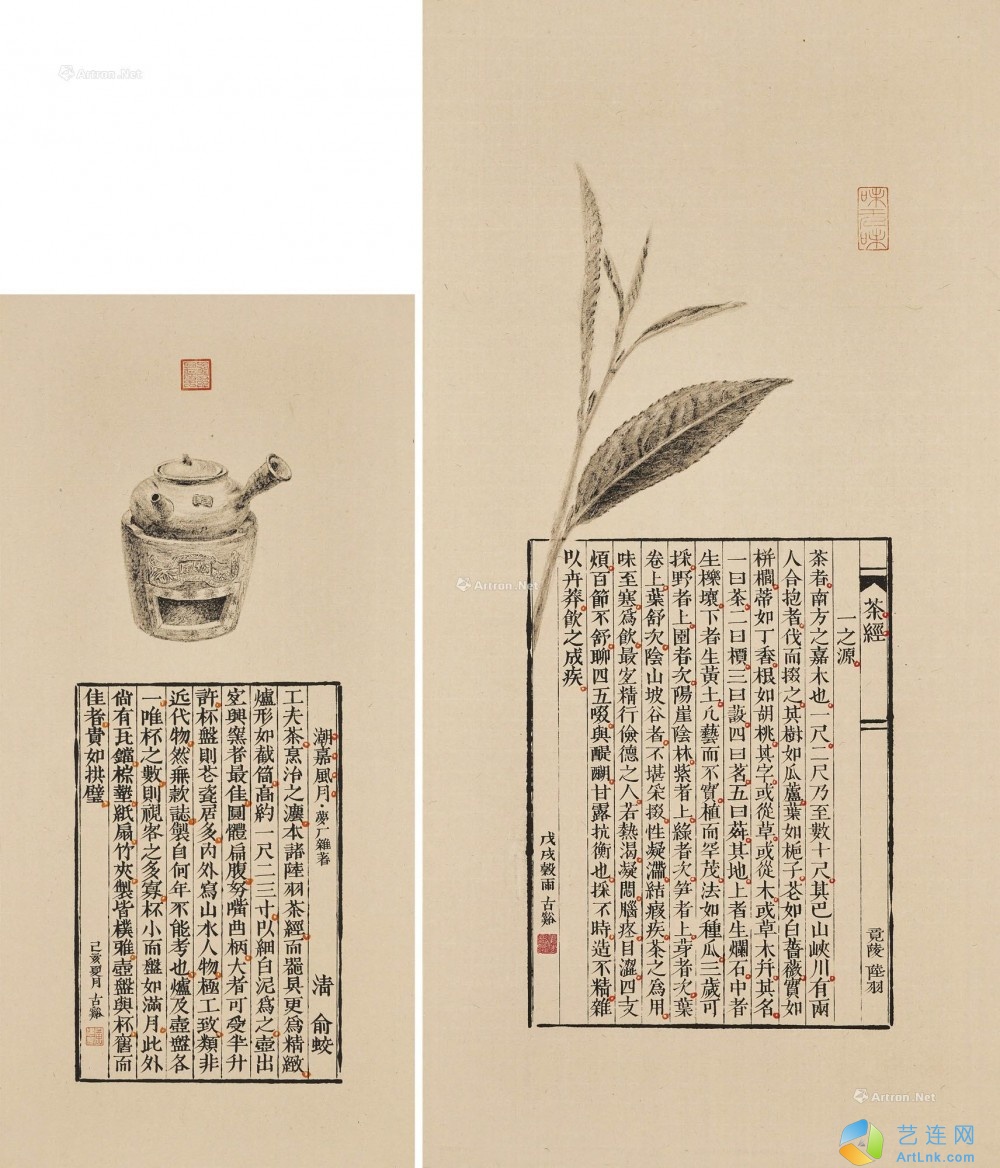 味无味
茶經
竟陵 陸羽
一之源
茶者南方之嘉木也一尺二尺乃至數十尺其巴山峽川有兩
人合抱者伐而掇之其樹如瓜蘆葉如梔子花如白薔薇實如
栟櫚蒂如丁香根如胡桃其字或從草或從木或草木并其名
一曰茶二曰檟三曰蔎四曰茗五曰荈其地上者生爛石中者
生櫟壤下者生黃土凡藝而不實植而罕茂法如種瓜三歲可
採野者上園者次陽崖陰林紫者上綠者次笋者上芽者次葉
卷上葉舒次陰山坡谷者不堪采掇性凝滯結瘕疾茶之爲用
味至寒爲飲最宜精行儉德之人若熱渴凝悶腦疼目澀四支
煩百節不舒聊四五啜與醍醐甘露抗衡也採不時造不精雜
以卉莽飲之成疾
戊戌穀雨 古谿
潮嘉風月·夢厂雜著 清 俞蛟
工夫茶烹治之灋本諸陸羽茶經而器具更爲精緻
爐形如截筒高約一尺二三寸以細白泥爲之壺出
宜興窯者最佳圓體扁腹努嘴曲柄大者可受半升
許杯盤則花瓷居多內外寫山水人物極工致類非
近代物然無款誌製自何年不能考也爐及壺盤各
一唯杯之數則視客之多寡杯小而盤如滿月此外
尚有瓦鐺棕墊紙扇竹夾製皆樸雅壺盤與杯舊而
佳者貴如拱璧
己亥夏月 古谿
Artron.Net
Artron.Net
Artron.Net
艺连网
ArtLnk.com